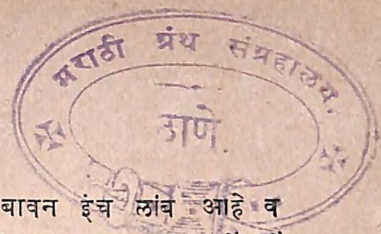 मराठी ग्रंथ संग्रहालय.
ठाणे.
बावन इंच लांब आहे व